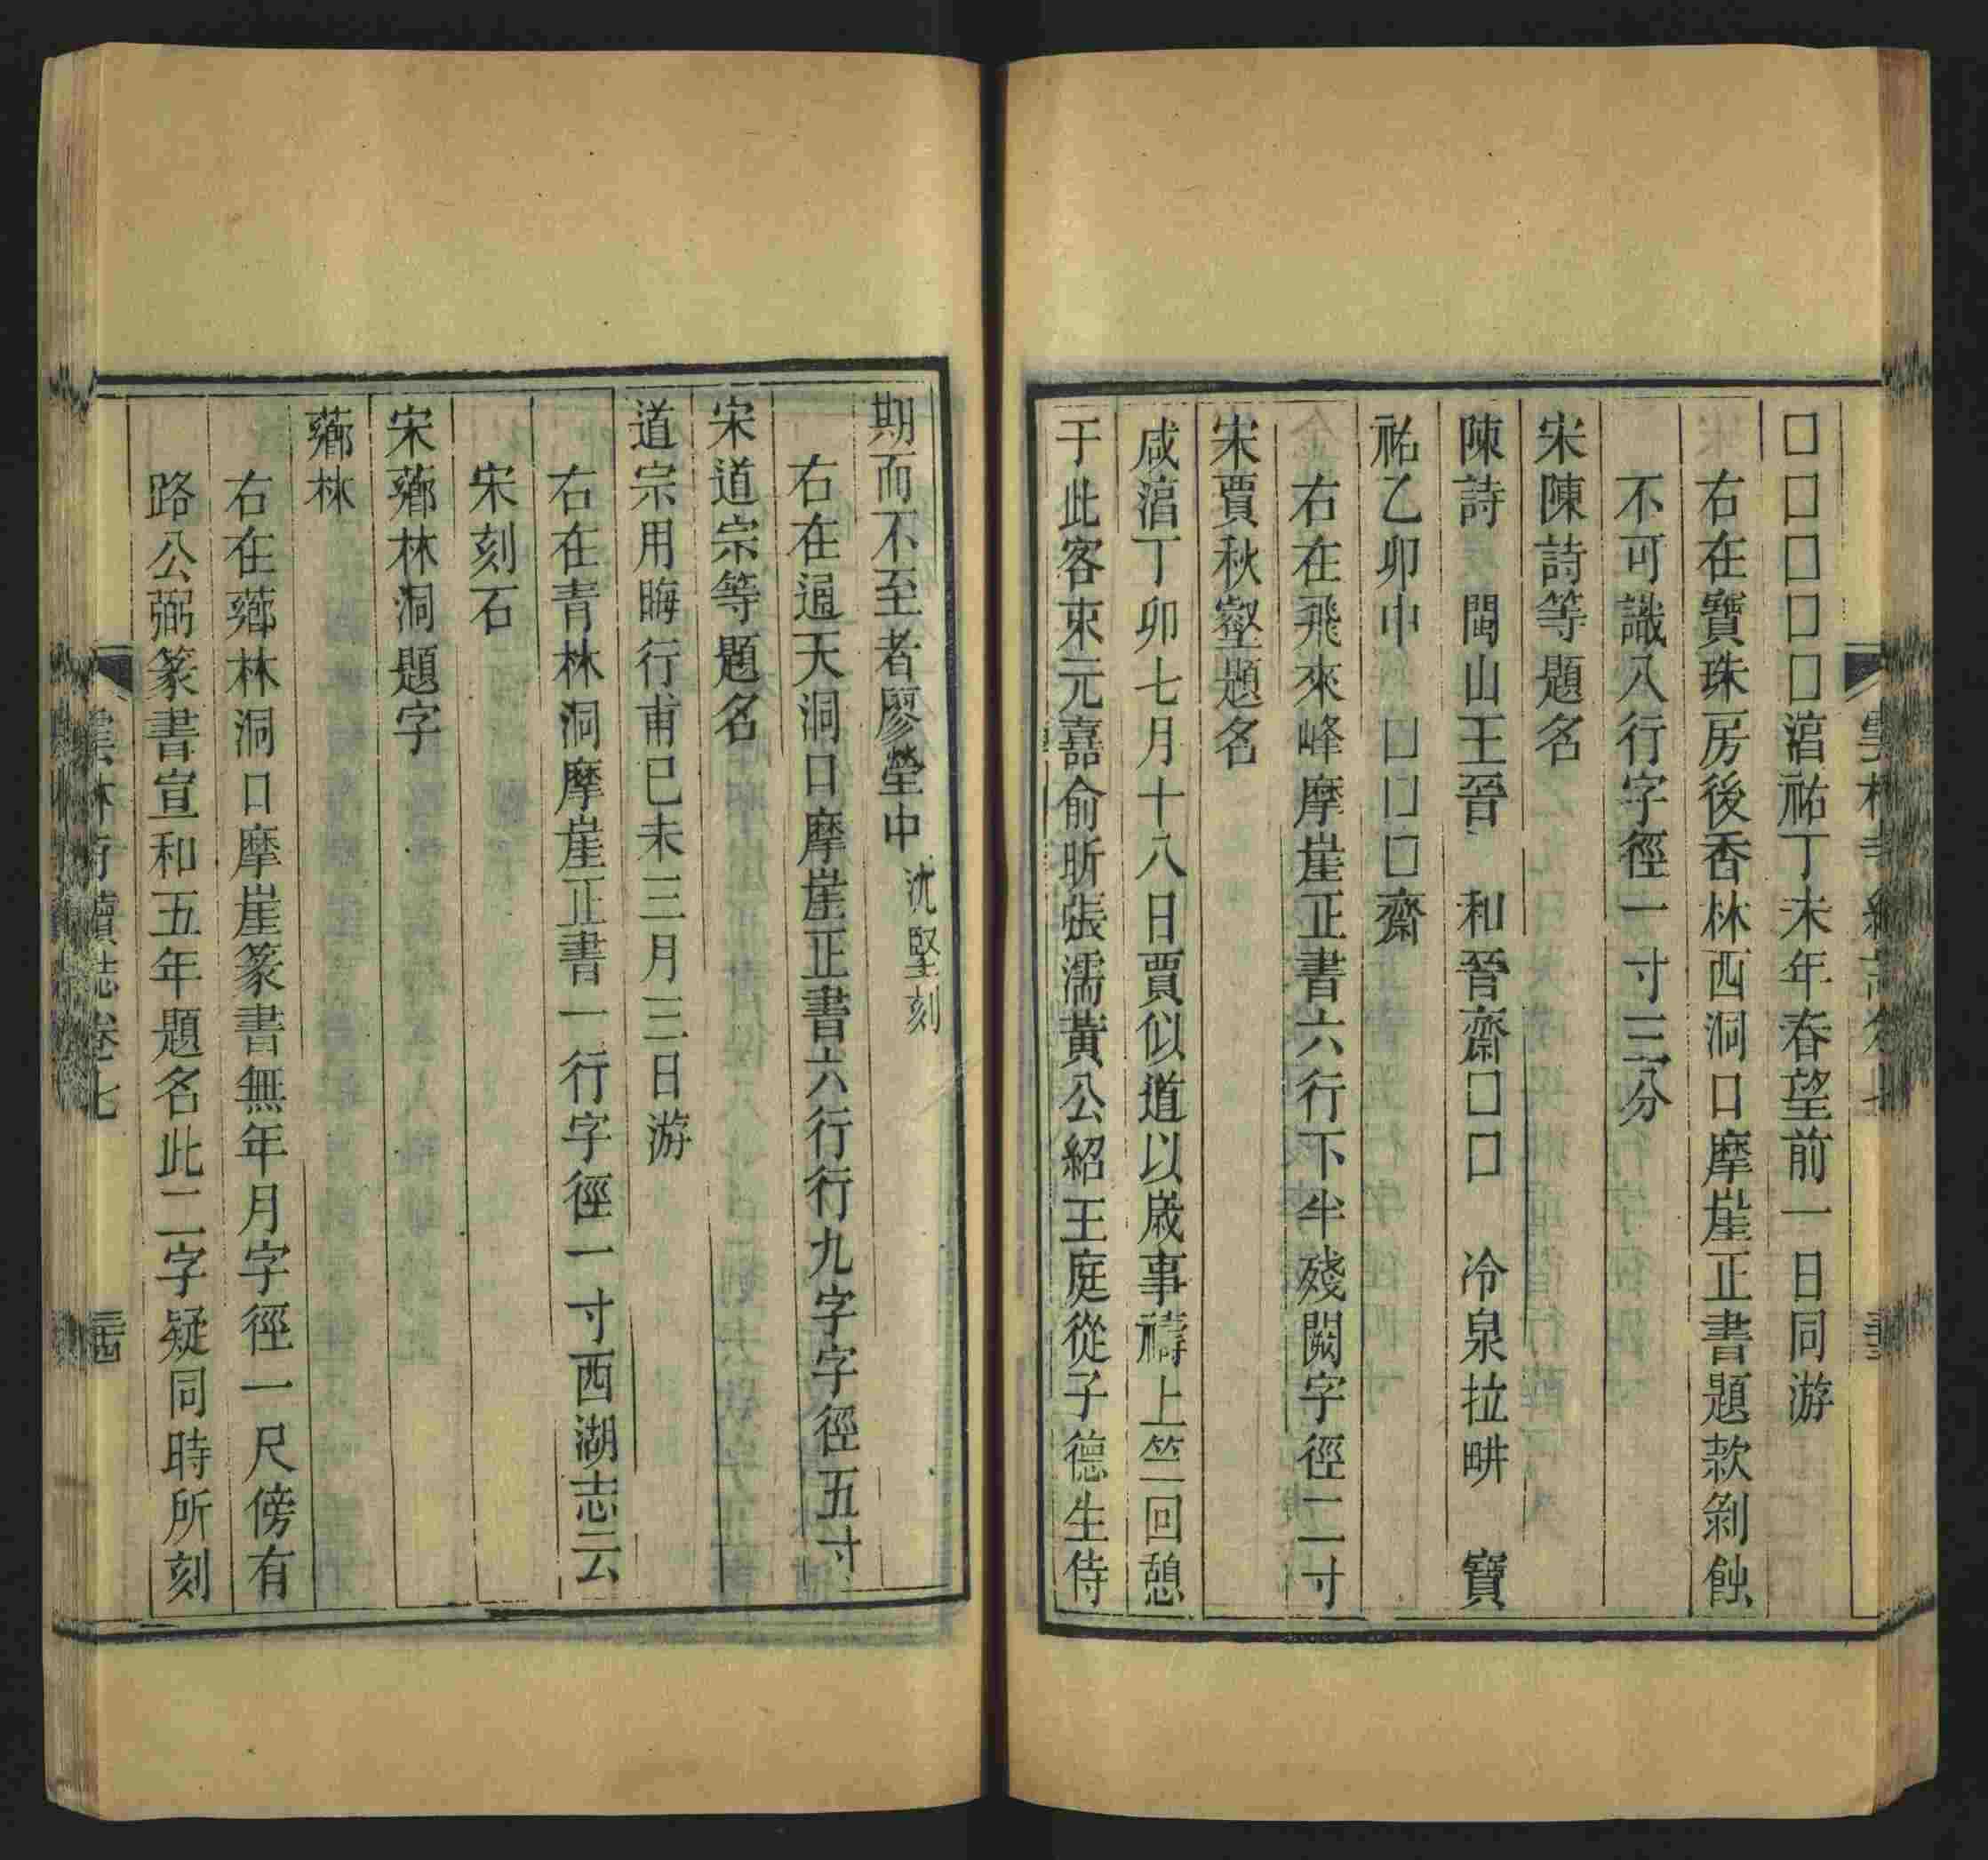 □□□□□湻祐丁未年春望前一日同游
右在寶珠房後香林西洞口摩崖正書題款剝蝕
不可識八行字徑一寸三分
宋陳詩等題名
陳詩 閩山王晉 和晉齋□□ 冷泉拉畊 寶
祐乙卯中 □□□齋
右在飛來峰摩崖正書六行下半殘闕字徑二寸
宋賈秋壑題名
咸湻丁卯七月十八日賈似道以歲事禱上竺回憩
于此客束元嘉俞昕張濡黃公紹王庭從子德生侍
期而不至者廖瑩中 沈堅刻
右在通天洞口摩崖正書六行行九字字徑五寸
宋道宗等題名
道宗用晦行甫巳未三月三日游
右在青林洞摩崖正書一行字徑一寸西湖志云
宋刻石
宋薌林洞題字
薌林
右在薌林洞口摩崖篆書無年月字徑一尺傍有
路公弼篆書宣和五年題名此二字疑同時所刻